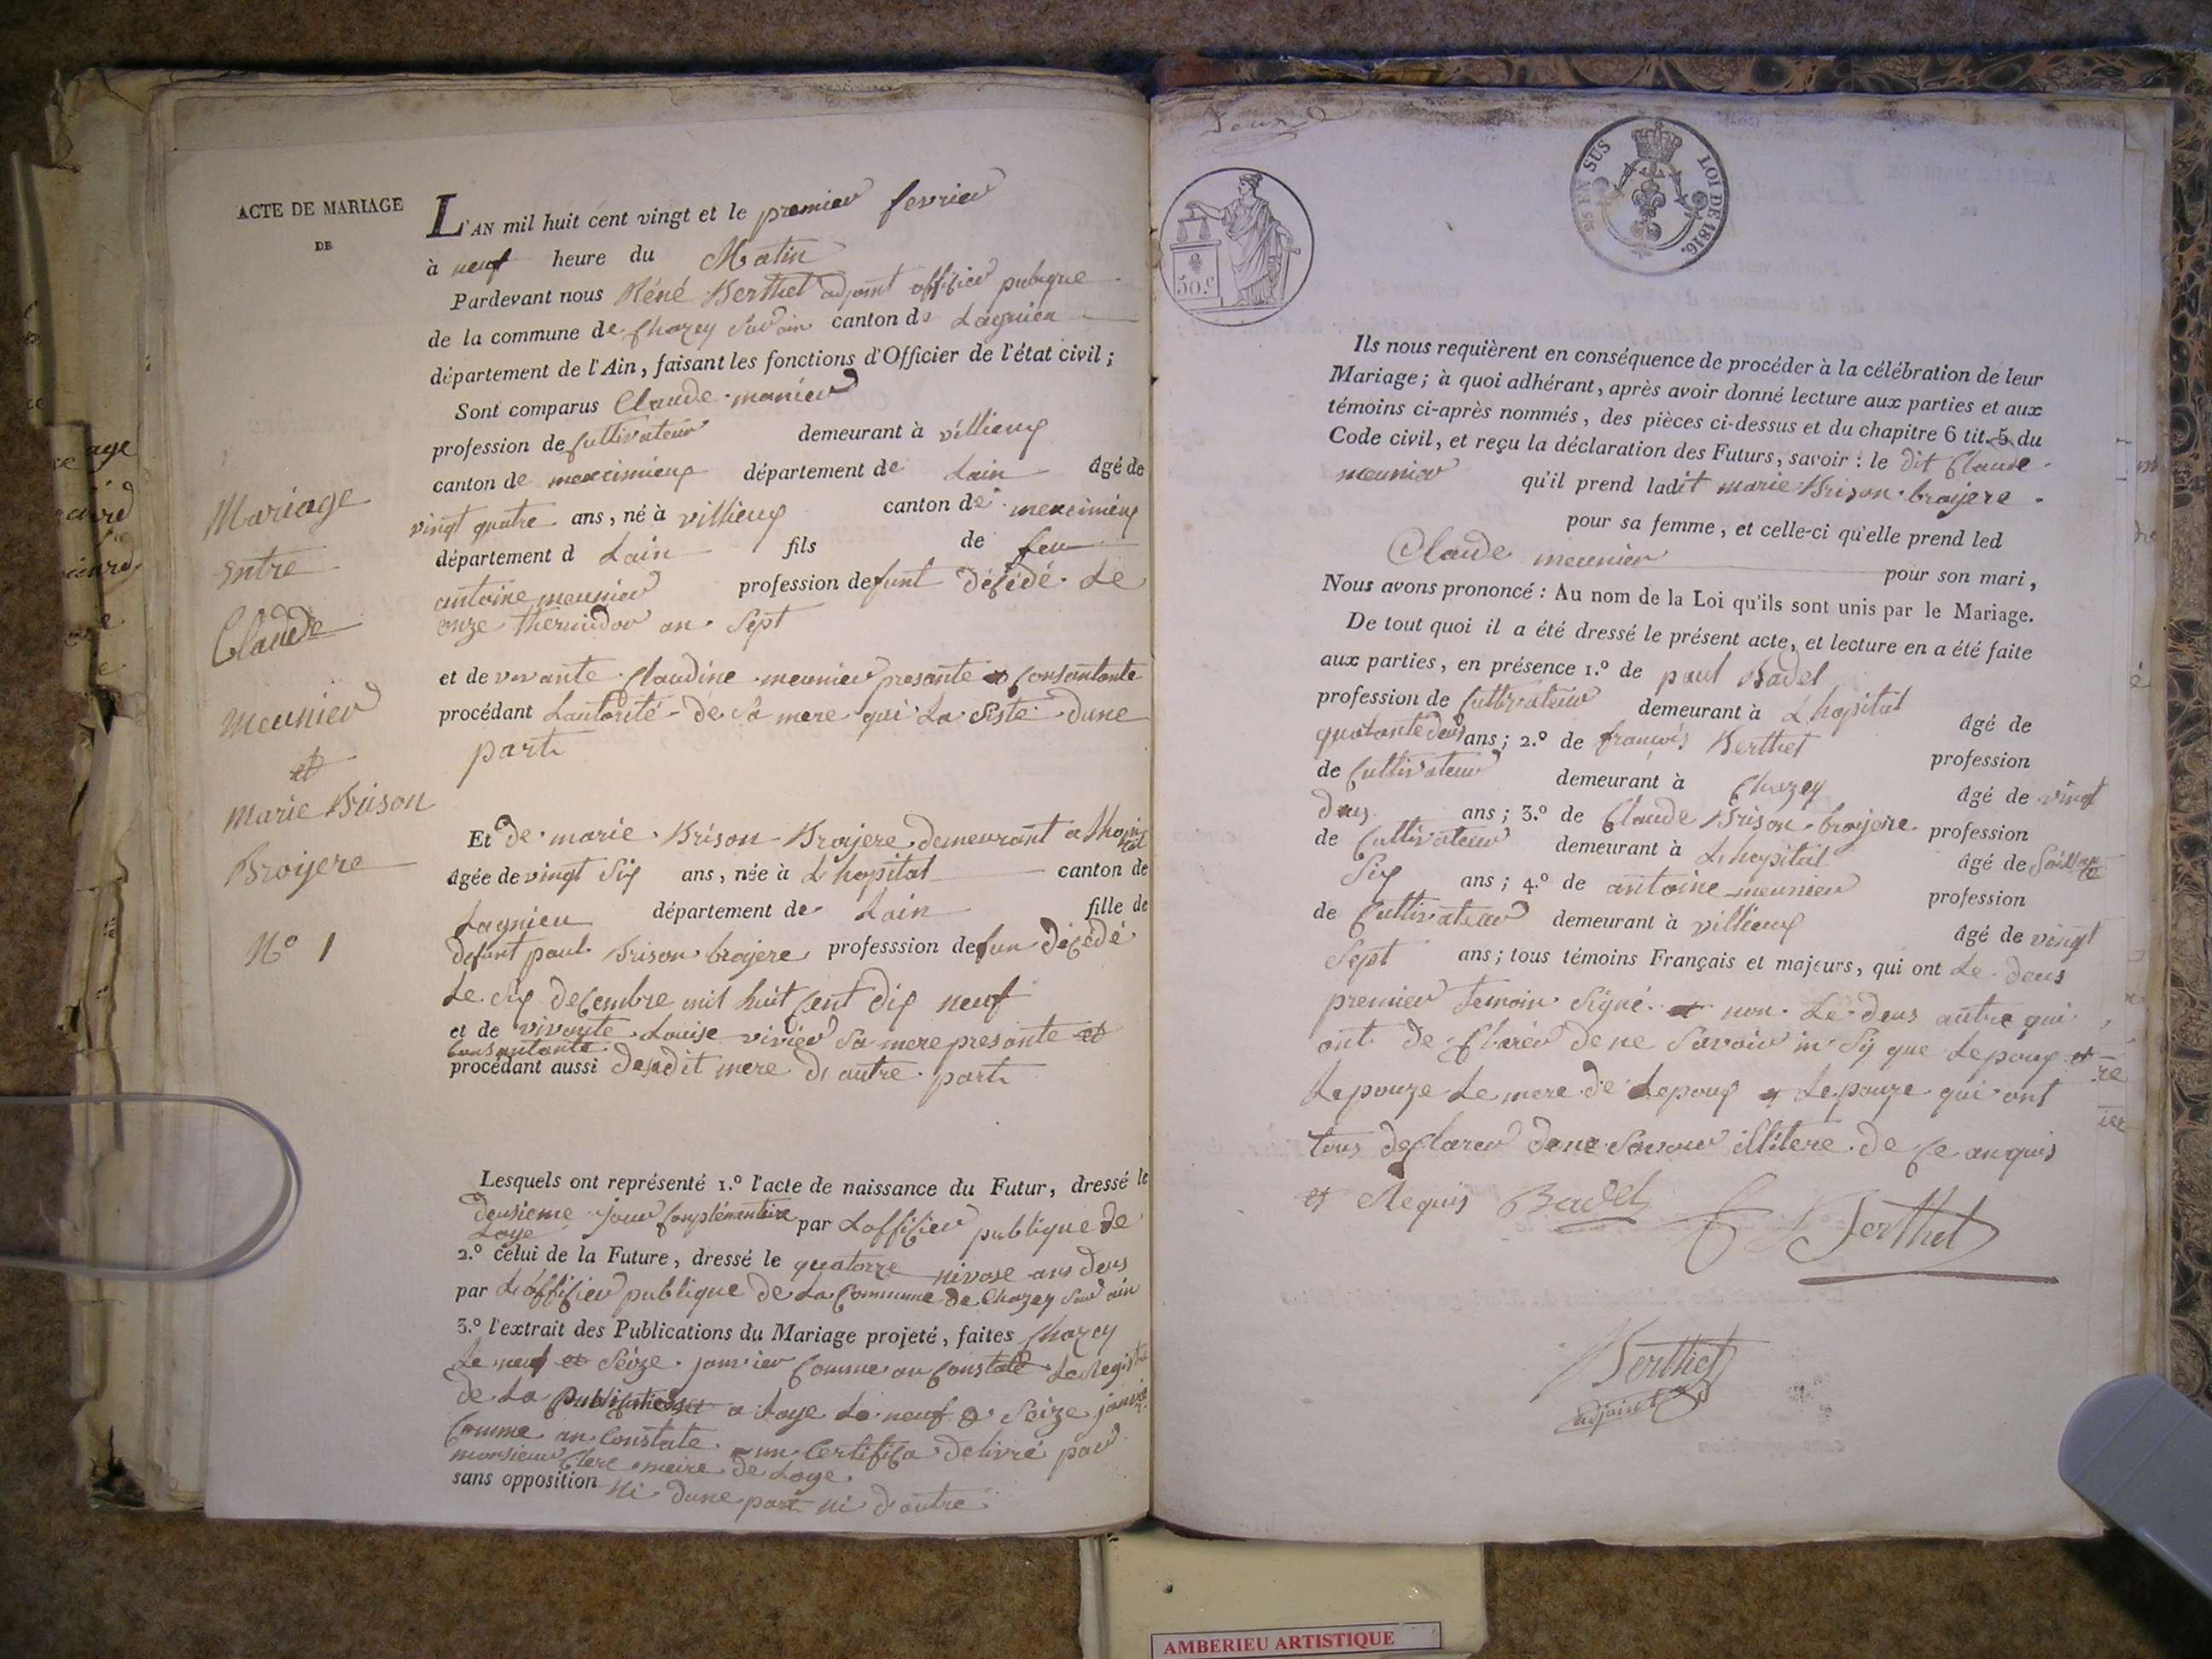 ACTE DE MARIAGE
DE
Mariage
Entre
Claude
Meunier
et
Marie Brison
Broyere
N° 1
L'AN mil huit cent vingt et le premier fevrier
à neuf heure du Matin
Pardevant nous Réné Berthet adjoint officier publique
de la commune de Chazey Sur ain canton de Lagnieu
département de l'Ain, faisant les fonctions d'Officier de l'état civil ;
Sont comparus Claude munier
profession de Cultivateur demeurant à villieux
canton de meximieux département de Lain âgé de
vingt quatre ans, né à villieux canton de meximieux
département d Lain fils de feu
antoine meunier profession defunt décédé Le
onze thermidor an Sept
et de vivante Claudine meunier presante et Consantante
procédant Lautorité de Sa mere qui La Siste dune
part
Et de marie Brison Broyere demeurant a Lhopital
âgée de vingt Six ans, née à Lhopital canton de
Lagnieu département de Lain fille de
defunt paul Brison broyere professsion defun décédé
Le Six decembre mil huit Cent dix neuf
et de vivante Louise vivier Sa mere presante et
Consantante
procédant aussi desadit mere d autre part
Lesquels ont représenté 1.º l'acte de naissance du Futur, dressé le
deusieme jour Complémentaire par Lofficier publique de
Loye
2.º celui de la Future, dressé le quatorze nivose ans deus
par Lofficier publique de La Commune de Chazey Sur ain
3.º l'extrait des Publications du Mariage projeté, faites Chazey
Le neuf et Seize janvier Comme an Constate Le Registre
de La Publication a Loye Le neuf et Seize janvier
Comme an Constate un Certifica delivré par
monsieur Clerc maire de Loye
sans opposition Ni dune part ni d'autre
Deux
50.C
EN SUS
LOI DE 1816.
Ils nous requièrent en conséquence de procéder à la célébration de leur
Mariage ; à quoi adhérant, après avoir donné lecture aux parties et aux
témoins ci-après nommés, des pièces ci-dessus et du chapitre 6 tit. 5 du
Code civil, et reçu la déclaration des Futurs, savoir : le dit Claude
meunier qu'il prend ladit marie Brison broyere
pour sa femme, et celle-ci qu'elle prend led
Claude meunier pour son mari,
Nous avons prononcé : Au nom de la Loi qu'ils sont unis par le Mariage.
De tout quoi il a été dressé le présent acte, et lecture en a été faite
aux parties, en présence 1.º de paul Badel
profession de Cultivateur demeurant à Lhopital âgé de
quatante deus ans ; 2.º de françois Berthet profession
de Cultivateur demeurant à Chazey âgé de vingt
deus ans ; 3.º de Claude Brison broyere profession
de Cultivateur demeurant à Lhopital âgé de Soissante
Six ans ; 4.º de antoine meunier profession
de Cultivateur demeurant à villieux âgé de vingt
Sept ans ; tous témoins Français et majeurs, qui ont Le deus
premier temoin Signé et non Le deus autre qui
ont de Clarér de ne Savoir in Sy que Lepoux et
Lepouze Le mere de Lepoux et Lepouze qui ont
tous declarer dene Savoir illitere de Ce anquis
et Requis Badel F Berthet
Berthet
adjoint
AMBERIEU ARTISTIQUE